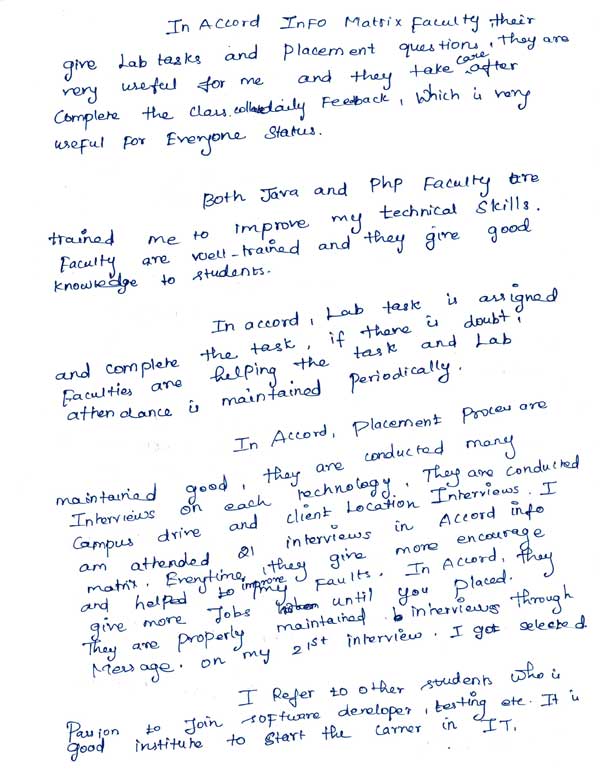 In Accord Info Matrix Faculty, their
give Lab tasks and Placement questions, they are
very useful for me and they take care after
Complete the class. daily Feedback, which is very
useful For Everyone Status.
Both Java and Php Faculty are
trained me to improve my technical Skills.
Faculty are well-trained and they give good
knowledge to students.
In accord, Lab task is assigned
and complete the task, if there is doubt,
Faculties are helping the task and Lab
attendance is maintained Periodically.
In Accord, Placement Process are
maintained good, they are conducted many
Interviews on each technology. They are conducted
Campus drive and client Location Interviews. I
am attended 21 interviews in Accord info
matrix. Everytime, they give more encourage
and helped to improve my Faults. In Accord, they
give more Jobs until you Placed.
They are Properly maintained interviews through
Message. on my 21st interview. I got selected
I Refer to other students who is
Passion to Join software developer, testing etc. It is
good institute to Start the Carrer in IT.